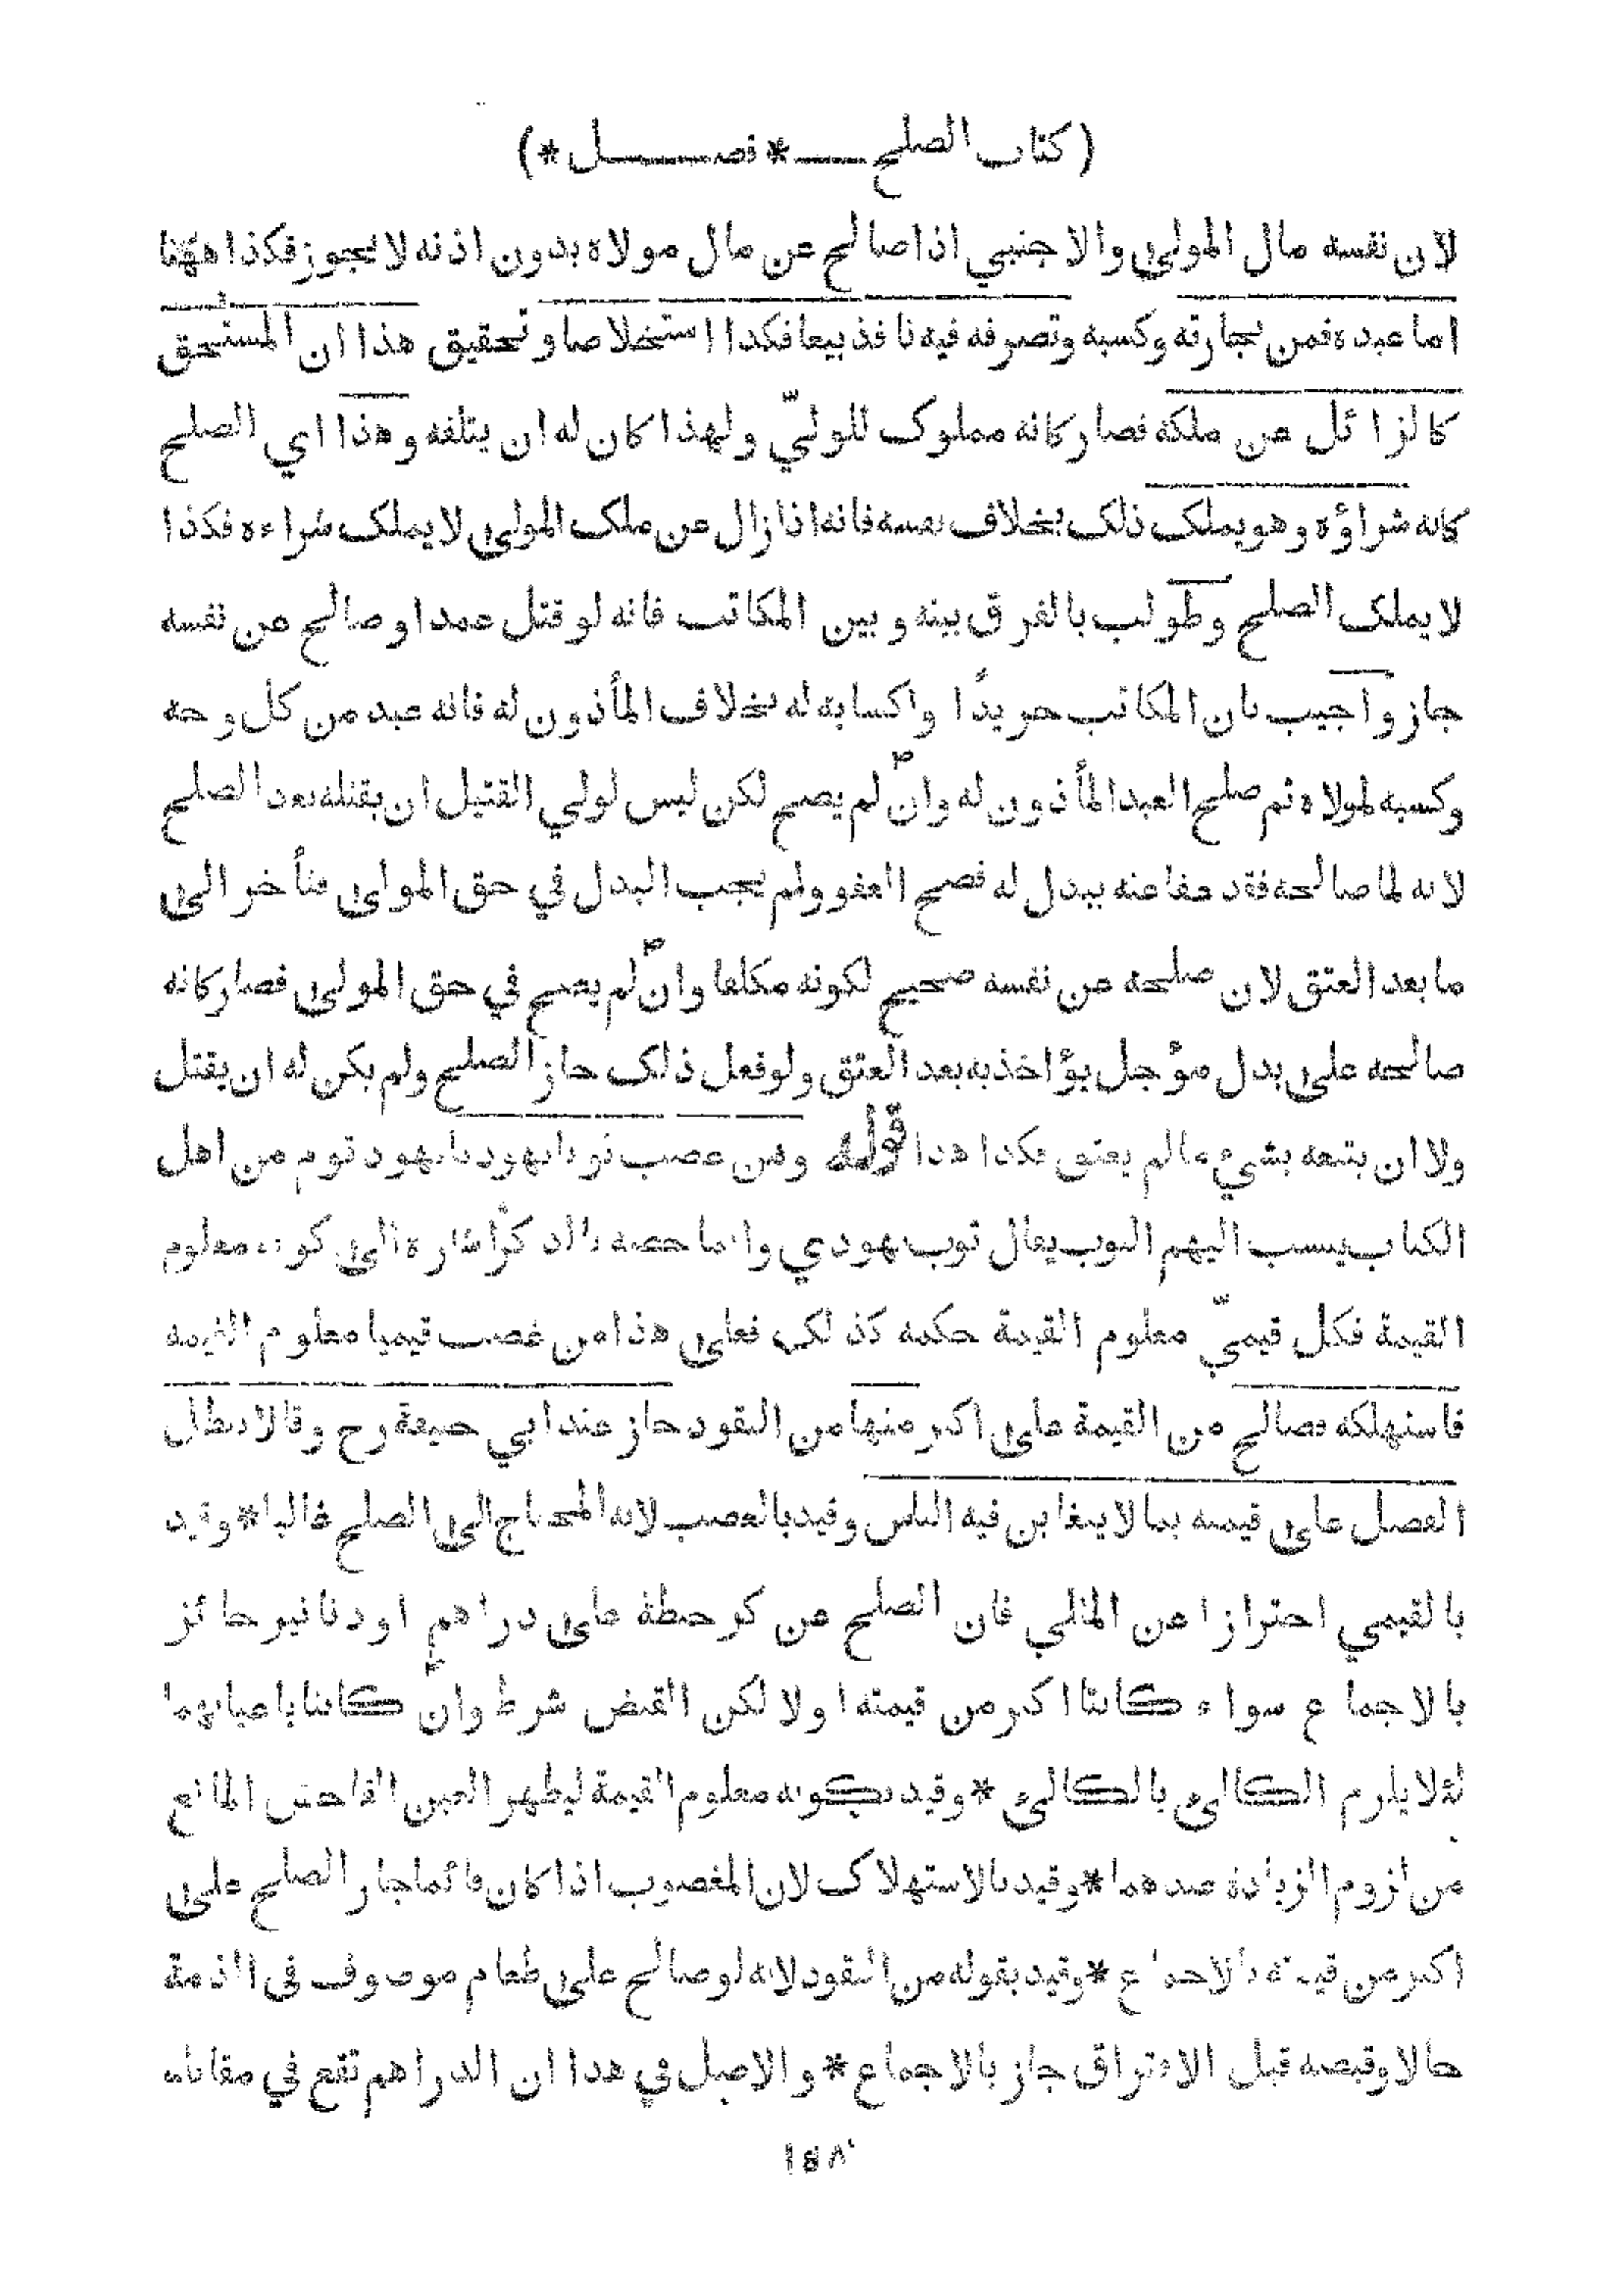 ( كتاب الصلح * فصل * )
لان نفسه مال المولى والاجنبي اذا صالح عن مال مولاه بدون اذنه لا يجوز فكذا ههنا
اما عبده فمن تجارته وكسبه وتصرفه فيه نافذ بيعا فكذا استخلاصا وتحقيق هذا ان المستحق
كالزائل عن ملكه فصار كانه مملوك للوليّ ولهذا كان له ان يتلفه وهذا اي الصلح
كانه شراؤه وهو يملك ذلك بخلاف نفسه فانه اذا زال عن ملك المولى لا يملك شراءه فكذا
لا يملك الصلح وطولب بالفرق بينه وبين المكاتب فانه لو قتل عمدا وصالح عن نفسه
جاز واجيب بان المكاتب حر يدًا واكسابه له بخلاف المأذون له فانه عبد من كل وجه
وكسبه لمولاه ثم صلح العبد المأذون له وان لم يصح لكن ليس لولي القتيل ان يقتله بعد الصلح
لانه لما صالحه فقد عفا عنه ببدل له فصح العفو ولم يجب البدل في حق المولى فتأخر الى
ما بعد العتق لان صلحه عن نفسه صحيح لكونه مكلفا وان لم يصح في حق المولى فصار كانه
صالحه على بدل مؤجل يؤاخذ به بعد العتق ولو فعل ذلك جاز الصلح ولم يكن له ان يقتل
ولا ان يتبعه بشيء ما لم يعتق فكذا هذا قوله ومن غصب ثوبا يهوديا يهود قوم من اهل
الكتاب ينسب اليهم الثوب يقال ثوب يهودي وانما خصه بالذكر اشارة الى كونه معلوم
القيمة فكل قيميّ معلوم القيمة حكمه كذلك فعلى هذا من غصب قيميا معلوم القيمة
فاستهلكه فصالح من القيمة على اكثر منها من النقود جاز عند ابي حنيفة رح وقالا يبطل
الفضل على قيمته بما لا يتغابن فيه الناس وقيد بالغصب لانه المحتاج الى الصلح غالبا * وقيد
بالقيمي احترازا عن المثلي فان الصلح عن كر حنطة على دراهم او دنانير جائز
بالاجماع سواء كانتا اكثر من قيمته اولا لكن القبض شرط وان كانتا باعيانهما
لئلا يلزم الكالئ بالكالئ * وقيد بكونه معلوم القيمة ليظهر الغبن الفاحش المانع
من لزوم الزيادة عندهما * وقيد بالاستهلاك لان المغصوب اذا كان قائما جاز الصلح على
اكثر من قيمته بالاجماع * وقيد بقوله من النقود لانه لو صالح على طعام موصوف فى الذمة
حالا وقبضه قبل الافتراق جاز بالاجماع * والاصل في هذا ان الدراهم تقع في مقابلة